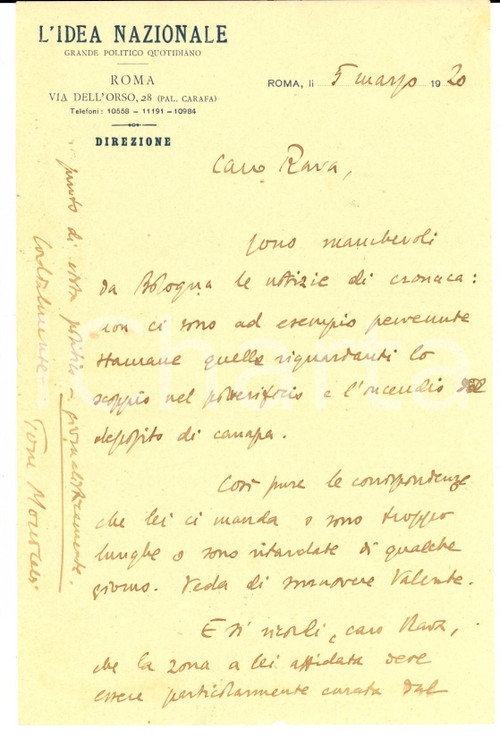 L'IDEA NAZIONALE
GRANDE POLITICO QUOTIDIANO
ROMA
VIA DELL'ORSO, 28 (PAL. CARAFA)
Telefoni: 10558 - 11191 - 10984
DIREZIONE
ROMA, li 5 marzo 1920
Caro Rava,
sono manchevoli
da Bologna le notizie di cronaca:
non ci sono ad esempio pervenute
stamane quelle riguardanti lo
scoppio nel polverificio e l'incendio
deposito di canapa.
Così pure le corrispondenze
che lei ci manda o sono troppo
lunghe o sono ritardate di qualche
giorno. Veda di smuovere Valente.
E si ricordi, caro Rava,
che la zona a lei affidata deve
essere particolarmente curata dal
punto di vista politico e giornalisticamente.
Cordialmente